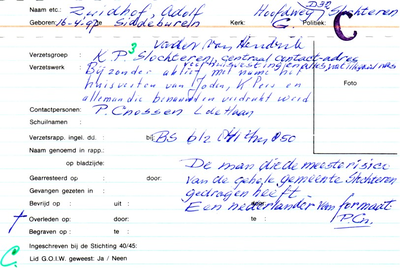 D32
Naam etc.: Zuidhof, Adolf Hoofdweg Slochteren
Geboren: 16-4-07 te Siddeburen Kerk: G Politiek: C
Vader van Hendrik
Verzetsgroep : K.P. 3 Slochteren, centraal contact-adres
Verzetswerk :
Bijzonder aktief met name het
huisvesten van Joden, K.P.ers en
allemandie benauwd en verdrukt werd
Contactpersonen: P. Cnossen L de Haan
Schuilnaam :
Foto
Verzetsrapp. ingel. dd. : bij BS blz
Naam genoemd in rapp.:
op bladzijde:
Gearresteerd op : door:
Gevangen gezeten in :
Bevrijd op : uit : door:
Overleden op : door: te :
Begraven op : te :
De man die de meeste risico
van de gehele gemeente Slochteren
gedragen heeft.
Een nederlander van formaat
P.Cn.
Ingeschreven bij de Stichting 40/45:
C. Lid G.O.I.W. geweest: Ja / Neen